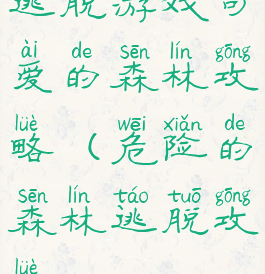 逃脱游戏可
ài de sēn lín gōng
爱的森林攻
lüè wēi xiǎn de
略（危险的
sēn lín táo tuō gōng
森林逃脱攻
lüè